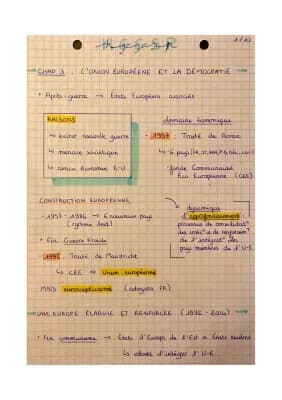 H G G S P
1/10
CHAP 3 : L'UNION EUROPÉENNE ET LA DÉMOCRATIE
• Après-guerre → États Européens associés
RAISONS
↳ éviter nouvelle guerre
↳ menace soviétique
domaine économique
- 1957 : Traité de Rome
↳ 6 pays
fonde Communauté
Éco Européenne (CEE)
CONSTRUCTION EUROPÉENNE
- 1957 - 1986 → 6 nouveaux pays
• Fin Guerre Froide
- 1992 : Traité de Maastricht
↳ CEE → Union européenne
MAIS euroscepticisme (citoyens FR)
dynamique
d'approfondissement
processus de consolidat°
des inst° et de renforcem
de l'intégrat° des
pays membres de l'U-E
UNE EUROPE ÉLARGIE ET RENFORCÉE (1992 - 2004)
• Fin communisme → États d'Europe de l'Est = États neutres
↳ d'intégrer l'U-E